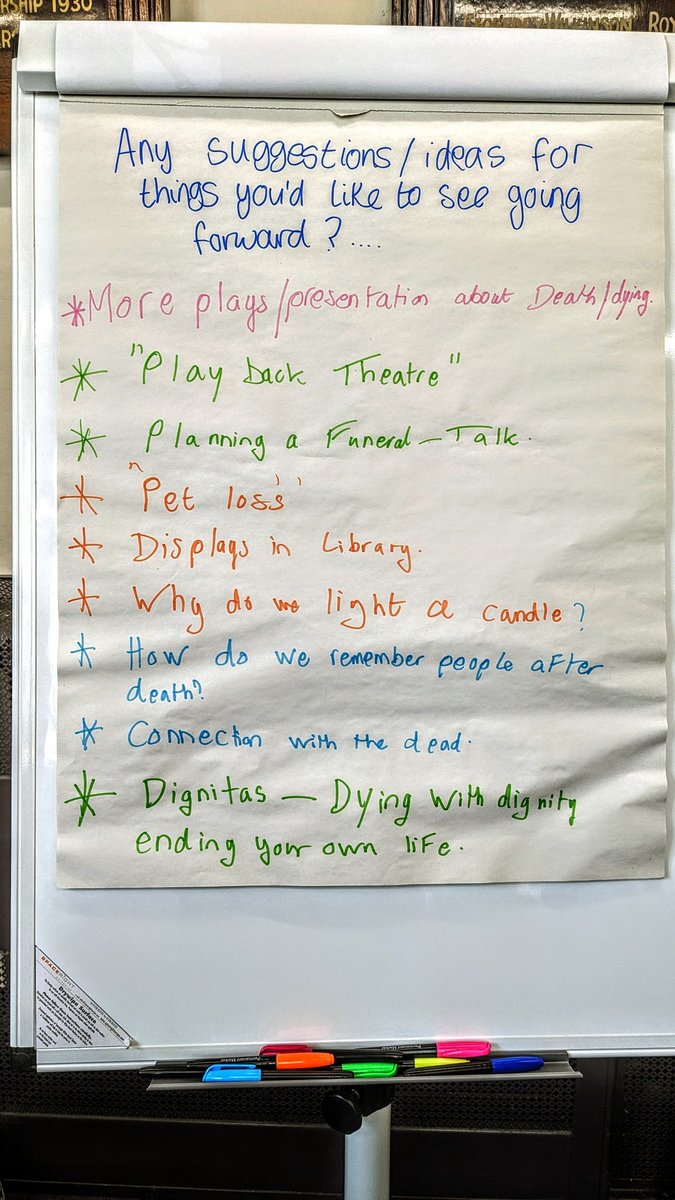 RSHIP 1930
ROY
Any suggestions/ideas for
things you'd like to see going
forward?....
*More plays/presentation about Death/dying.
* "Play back Theatre"
* Planning a Funeral - Talk.
* "Pet loss"
* Displays in Library.
* Why do we light a candle?
* How do we remember people after
death?
* Connection with the dead.
* Dignitas - Dying with dignity
ending your own life.
SPACERIGHT
Drywipe Surface